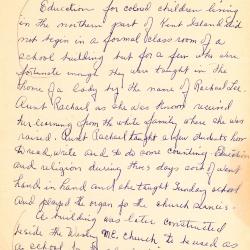 Education for colored children living
in the northern part of Kent Island did
not begin in a formal class room of a
school building but for a few who were
fortunate enough they were taught in the
home of a lady by the name of Rachael Lee.
Aunt Rachael as she was known received
her learning from the white family where she was
raised. Aunt Rachael taught a few students how
to read, write and to do some counting. Education
and religion during those days sort of went
hand in hand and she taught Sunday school
and played the organ for the church services.
A building was later constructed
beside the Wesley M.E. church to be used as
a school